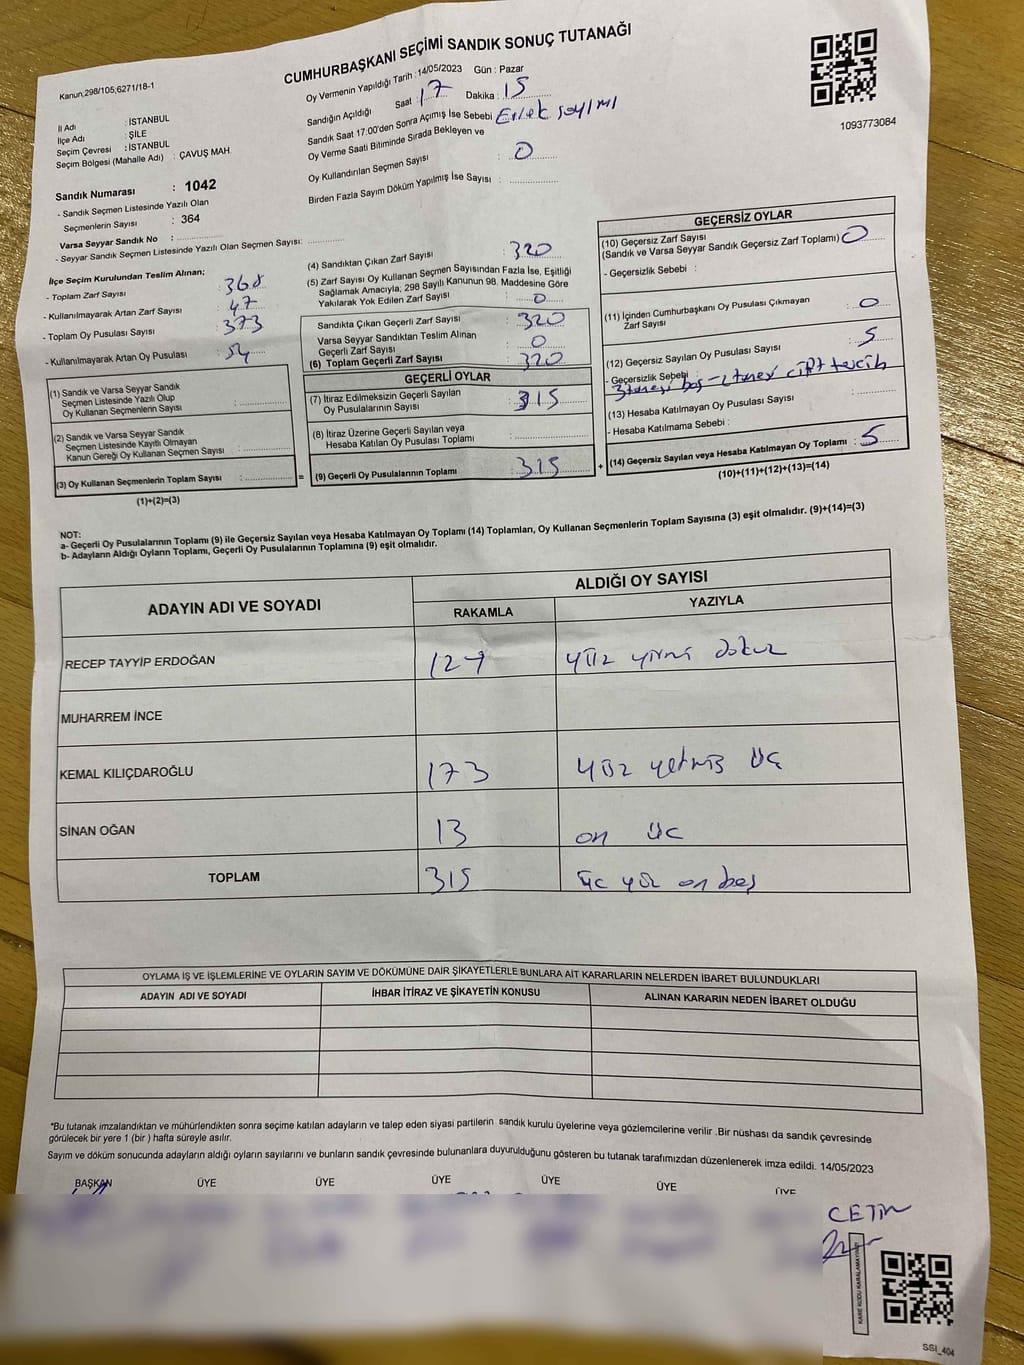 CUMHURBAŞKANI SEÇİMİ SANDIK SONUÇ TUTANAĞI
Kanun,298/105,6271/18-1
İl Adı : İSTANBUL
İlçe Adı : ŞİLE
Seçim Çevresi : İSTANBUL
Seçim Bölgesi (Mahalle Adı) : ÇAVUŞ MAH.
Sandık Numarası : 1042
- Sandık Seçmen Listesinde Yazılı Olan
Seçmenlerin Sayısı : 364
Varsa Seyyar Sandık No :
- Seyyar Sandık Seçmen Listesinde Yazılı Olan Seçmen Sayısı:
Oy Vermenin Yapıldığı Tarih : 14/05/2023 Gün : Pazar
Sandığın Açıldığı Saat : 17 Dakika : 15
Sandık Saat 17:00'den Sonra Açımış İse Sebebi
Oy Verme Saati Bitiminde Sırada Bekleyen ve
Oy Kullandırılan Seçmen Sayısı : 0
Birden Fazla Sayım Döküm Yapılmış İse Sayısı :
1093773084
İlçe Seçim Kurulundan Teslim Alınan;
- Toplam Zarf Sayısı : 368
- Kullanılmayarak Artan Zarf Sayısı : 47
- Toplam Oy Pusulası Sayısı : 373
- Kullanılmayarak Artan Oy Pusulası : 54
(1) Sandık ve Varsa Seyyar Sandık
Seçmen Listesinde Yazılı Olup
Oy Kullanan Seçmenlerin Sayısı :
(2) Sandık ve Varsa Seyyar Sandık
Seçmen Listesinde Kayıtlı Olmayan
Kanun Gereği Oy Kullanan Seçmen Sayısı :
(3) Oy Kullanan Seçmenlerin Toplam Sayısı :
(1)+(2)=(3)
(4) Sandıktan Çıkan Zarf Sayısı : 320
(5) Zarf Sayısı Oy Kullanan Seçmen Sayısından Fazla İse, Eşitliği
Sağlamak Amacıyla; 298 Sayılı Kanunun 98. Maddesine Göre
Yakılarak Yok Edilen Zarf Sayısı : 0
Sandıkta Çıkan Geçerli Zarf Sayısı : 320
Varsa Seyyar Sandıktan Teslim Alınan
Geçerli Zarf Sayısı : 0
(6) Toplam Geçerli Zarf Sayısı : 320
GEÇERLİ OYLAR
(7) İtiraz Edilmeksizin Geçerli Sayılan
Oy Pusulalarının Sayısı : 315
(8) İtiraz Üzerine Geçerli Sayılan veya
Hesaba Katılan Oy Pusulası Toplamı :
= (9) Geçerli Oy Pusulalarının Toplamı : 315 +
GEÇERSİZ OYLAR
(10) Geçersiz Zarf Sayısı
(Sandık ve Varsa Seyyar Sandık Geçersiz Zarf Toplamı) 0
- Geçersizlik Sebebi :
(11) İçinden Cumhurbaşkanı Oy Pusulası Çıkmayan
Zarf Sayısı : 0
(12) Geçersiz Sayılan Oy Pusulası Sayısı : 5
- Geçersizlik Sebebi :
3 tanesi boş - 2 tanesi çift tercih
(13) Hesaba Katılmayan Oy Pusulası Sayısı :
- Hesaba Katılmama Sebebi :
(14) Geçersiz Sayılan veya Hesaba Katılmayan Oy Toplamı : 5
(10)+(11)+(12)+(13)=(14)
NOT:
a- Geçerli Oy Pusulalarının Toplamı (9) ile Geçersiz Sayılan veya Hesaba Katılmayan Oy Toplamı (14) Toplamları, Oy Kullanan Seçmenlerin Toplam Sayısına (3) eşit olmalıdır. (9)+(14)=(3)
b- Adayların Aldığı Oyların Toplamı, Geçerli Oy Pusulalarının Toplamına (9) eşit olmalıdır.
ADAYIN ADI VE SOYADI
ALDIĞI OY SAYISI
RAKAMLA YAZIYLA
RECEP TAYYİP ERDOĞAN 129 yüz yirmi dokuz
MUHARREM İNCE
KEMAL KILIÇDAROĞLU 173 yüz yetmiş üç
SİNAN OĞAN 13 on üç
TOPLAM 315 üç yüz on beş
OYLAMA İŞ VE İŞLEMLERİNE VE OYLARIN SAYIM VE DÖKÜMÜNE DAİR ŞİKAYETLERLE BUNLARA AİT KARARLARIN NELERDEN İBARET BULUNDUKLARI
ADAYIN ADI VE SOYADI İHBAR İTİRAZ VE ŞİKAYETİN KONUSU ALINAN KARARIN NEDEN İBARET OLDUĞU
*Bu tutanak imzalandıktan ve mühürlendikten sonra seçime katılan adayların ve talep eden siyasi partilerin sandık kurulu üyelerine veya gözlemcilerine verilir .Bir nüshası da sandık çevresinde
görülecek bir yere 1 (bir ) hafta süreyle asılır.
Sayım ve döküm sonucunda adayların aldığı oyların sayılarını ve bunların sandık çevresinde bulunanlara duyurulduğunu gösteren bu tutanak tarafımızdan düzenlenerek imza edildi. 14/05/2023
BAŞKAN ÜYE ÜYE ÜYE ÜYE ÜYE ÜYE
CETİN
KARE KODU KARALAMAYINIZ
SSI_404